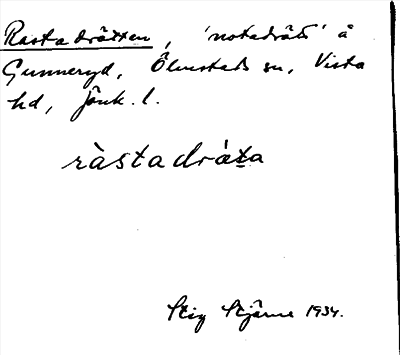 Rastadrätten, 'notadräts' å
Gunneryd, Ölmstads sn, Vista
hd, Jönk. l.
ràstadráta
Stig Stjärne 1934.